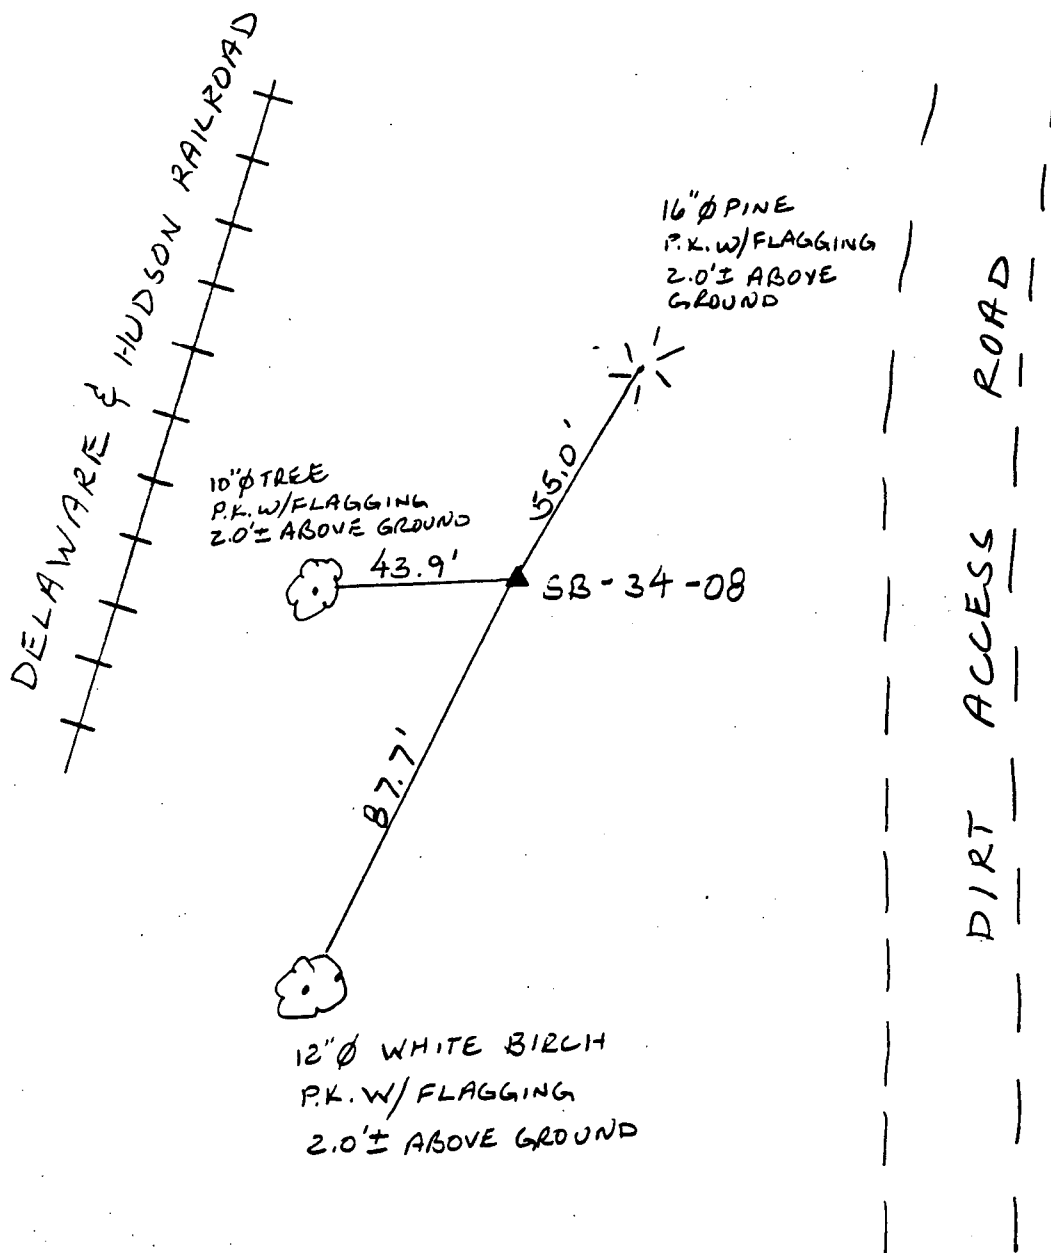 DELAWARE & HUDSON RAILROAD
16"Ø PINE
P.K. W/FLAGGING
2.0'± ABOVE
GROUND
55.0'
10"Ø TREE
P.K. W/FLAGGING
2.0'± ABOVE GROUND
43.9'
SB-34-08
87.7'
12"Ø WHITE BIRCH
P.K. W/ FLAGGING
2.0'± ABOVE GROUND
DIRT ACCESS ROAD